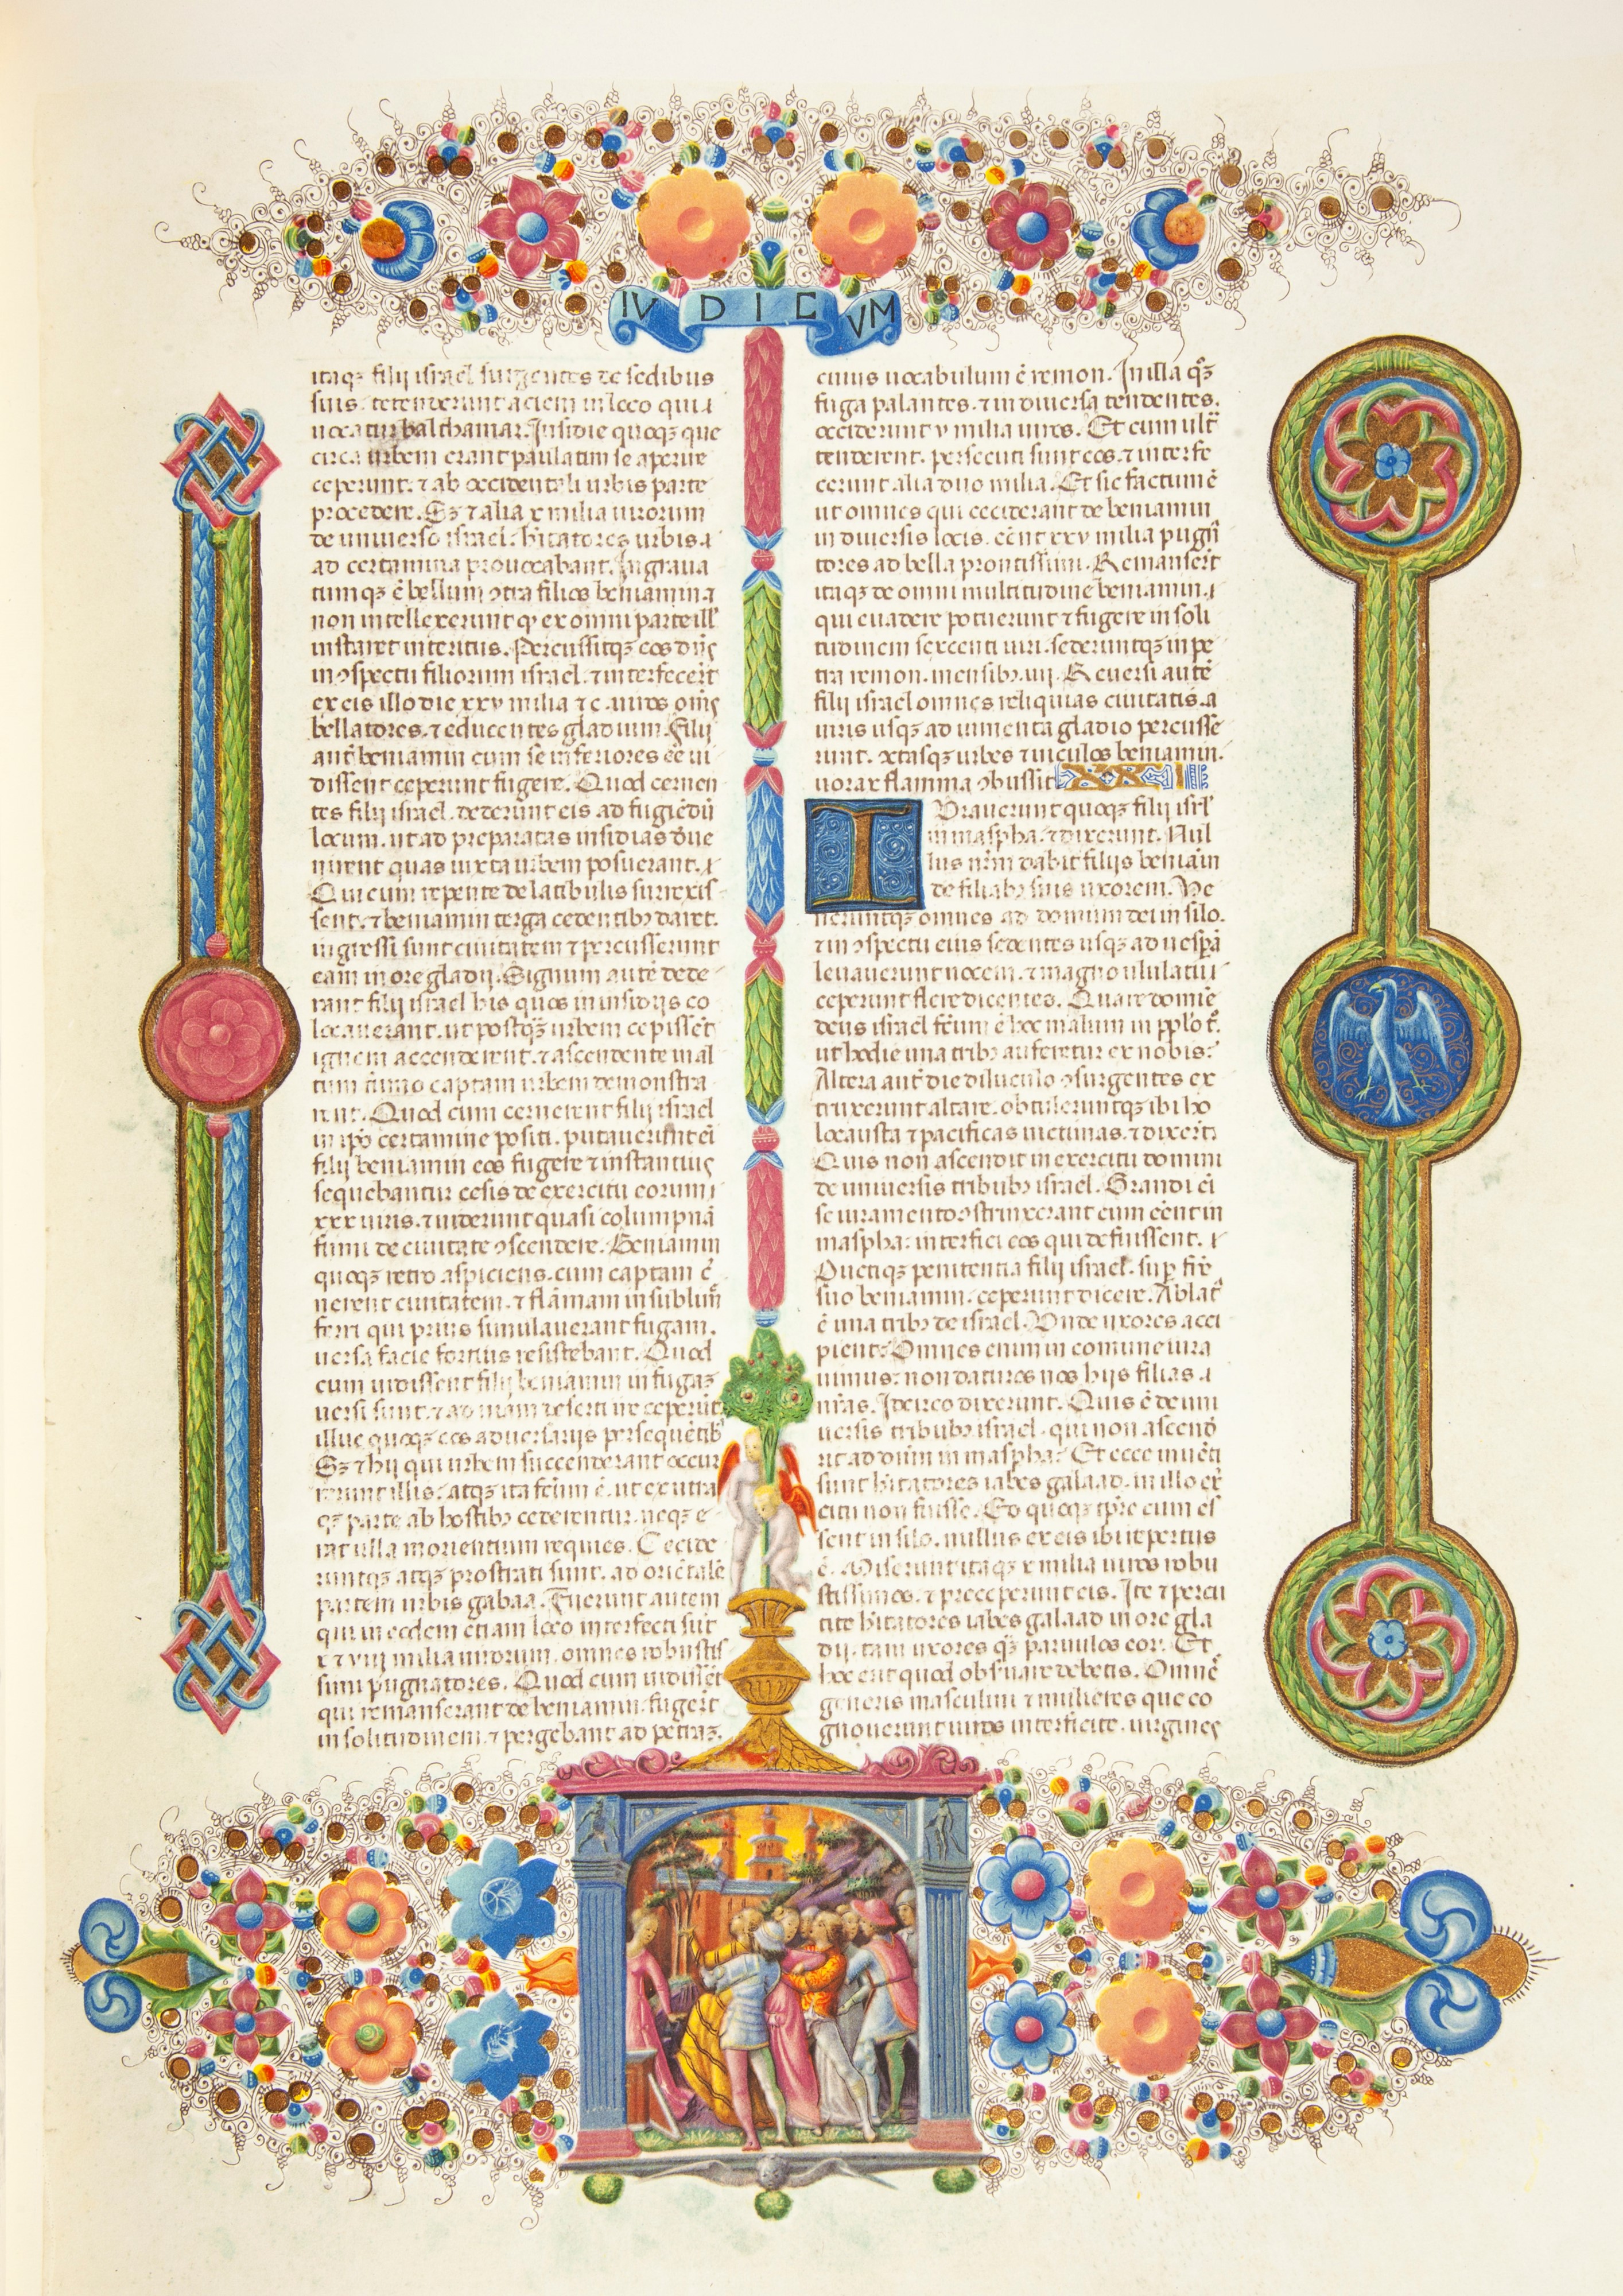 IVDICVM
itaqꝫ filij israel surgentes de sedibus
suis. tetenderunt aciem in loco qui
uocatur balthamar. Insidie quoqꝫ que
circa urbem erant paulatim se aperire
ceperunt. ⁊ ab occidentali urbis parte
procedere. Sꝫ ⁊ alia x milia uirorum
de uniuerso israel. hitatores urbis
ad certamina prouocabant. Ingraua
tumqꝫ ē bellum ꝯtra filios beniamin ⁊
non intellexerunt ꝙ ex omni parte ill'
instaret interitus. Percussitqꝫ eos dn̄s
in ꝯspectu filiorum israel. ⁊ interfecer̄t
ex eis illo die xxv milia ⁊ c. uiros om̄s
bellatores. ⁊ educentes gladium. Filij
aut̄ beniamin cum se inferiores ēē ui
dissent ceperunt fugere. Quod cernen
tes filij israel. dederunt eis ad fugiēdū
locum. ut ad preparatas insidias deue
nirent quas iuxta urbem posuerant.
Qui cum repente de latibulis surrexis
sent. ⁊ beniamin terga cedentibꝫ daret.
ingressi sunt ciuitatem ⁊ percusserunt
eam in ore gladij. Signum autē dede
rant filij israel his quos in insidijs co
locauerant. ut postqꝫ urbem cepissēt
ignem accenderent. ⁊ ascendente in al
tum fumo captam urbem demonstra
rent. Quod cum cernerent filij israel
in ip̄o certamine positi. putauerunt ei
filij beniamin eos fugere ⁊ instantius
sequebantur cesis de exercitu eorum
xxx uiris. ⁊ uiderunt quasi columpnā
fumi de ciuitate ꝯscendere. Beniamin
quoqꝫ retro aspiciens. cum captam c̄
nerent ciuitatem. ⁊ flāmam in sublim̄
ferri qui prius simulauerant fugam.
uersa facie fortius resistebant. Quod
cum uidissent filij beniamin in fugaꝫ
uersi sunt. ⁊ ad uiam deserti ire ceperūt
illuc quoqꝫ eos aduersarijs persequētibꝫ
Sꝫ ⁊ hij qui urbem succenderant occur
rerunt illis. atqꝫ ita fc̄um ē. ut ex utra
qꝫ parte ab hostibꝫ cederentur. neqꝫ e
rat ulla morientium requies. Cecide
runtqꝫ atqꝫ prostrati sunt. ad oriētale
partem urbis gabaa. Fuerunt autem
qui in eodem etiam loco interfecti sūt
x ⁊ viij milia uirorum. omnes robustis
simi pugnatores. Quod cum uidissēt
qui remanserant de beniamin. fuger̄t
in solitudinem. ⁊ pergebant ad petraꝫ.
cuius uocabulum ē remon. In illa qꝫ
fuga palantes. ⁊ in diuersa tendentes.
occiderunt v milia uiros. Et cum ult̄
tenderent. persecuti sunt eos. ⁊ interfe
cerunt alia duo milia. Et sic factum ē
ut omnes qui ceciderant de beniamin
in diuersis locis. eēnt xxv milia pugn̄
tores ad bella prontissimi. Remanser̄t
itaqꝫ de omni multitudine beniamin
qui euadere potuerunt ⁊ fugere in soli
tudinem sexcenti uiri. sederuntqꝫ in pe
tra remon. mensibꝫ iiij. Reuersi autē
filij israel omnes reliquias ciuitatis. a
uiris usqꝫ ad iumenta gladio percusse
runt. ꝯctasqꝫ urbes ⁊ uiculos beniamin.
uorax flamma ꝯbussit XXI
Iurauerunt quoqꝫ filij isrl'
in maspha. ⁊ dixerunt. Nul
lus nr̄m dabit filijs beniam̄
de filiabꝫ suis uxorem. Ve
neruntqꝫ omnes ad domum dei in silo.
⁊ in ꝯspectu eius sedentes usqꝫ ad uesp̄ā
leuauerunt uocem. ⁊ magno ululatu
ceperunt flere dicentes. Quare domīe
deus israel fc̄um ē hoc malum in pp̄lo t̄.
ut hodie una tribꝫ auferetur ex nobis.
Altera aut̄ die diluculo ꝯsurgentes ex
truxerunt altare. obtuleruntqꝫ ibi ho
locausta ⁊ pacificas uictimas. ⁊ dixer̄t.
Quis non ascendit in exercitu domini
de uniuersis tribubꝫ israel. Grandi ei
se iuramento ꝯstrinxerant cum eēnt in
maspha. interfici eos qui defuissent.
Ductiqꝫ penitentia filij israel. sup̄ fr̄e
suo beniamin. ceperunt dicere. Ablat̄
ē una tribꝫ de israel. Unde uxores acci
pient? Omnes enim in comune iura
uimus. non daturos nos hijs filias
nr̄as. Idcirco dixerunt. Quis ē de uni
uersis tribubꝫ israel. qui non ascend̄
it ad dn̄m in maspha? Et ecce inuēti
sunt hitatores iabes galaad. in illo ex̄
citu non fuisse. Eo quoqꝫ tp̄re cum es
sent in silo. nullus ex eis ibi repertus
ē. Miserunt itaqꝫ x milia uiros robu
stissimos. ⁊ preceperunt eis. Ite ⁊ percu
tite hitatores iabes galaad in ore gla
dij. tam uxores qꝫ paruulos eoꝝ. Et
hoc erit quod obs̄uare debetis. Omnē
generis masculini ⁊ mulieres que co
gnouerunt uiros interficite. uirgines